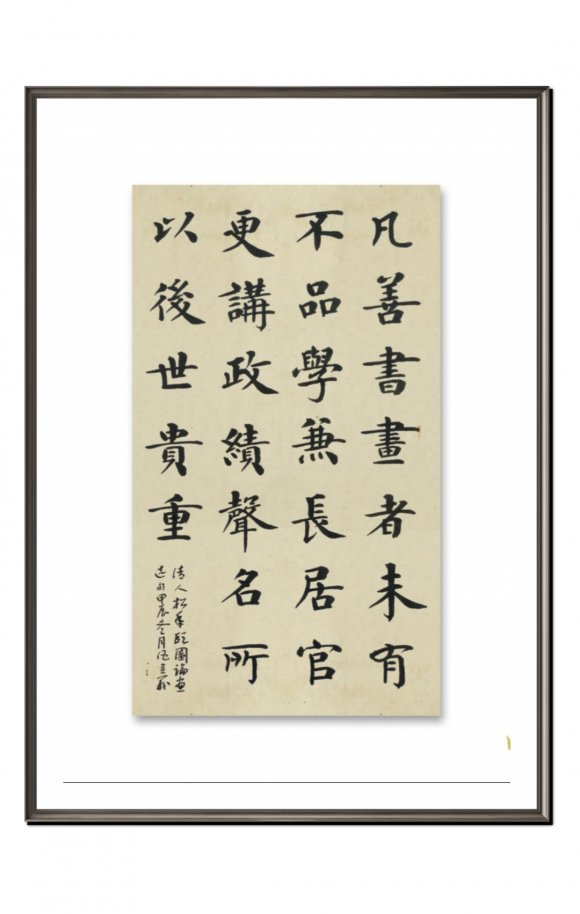 凡善書畫者未有
不品學兼長居官
更講政績聲名所
以後世貴重
清人松年頤園論畫
甲辰冬月